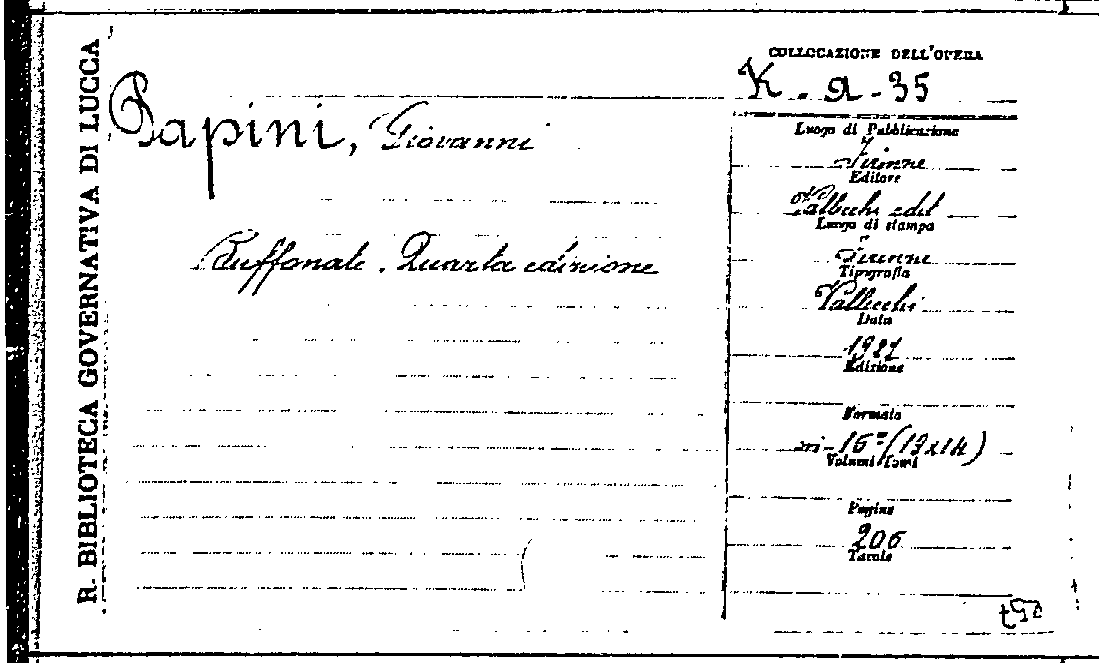 R. BIBLIOTECA GOVERNATIVA DI LUCCA
COLLOCAZIONE DELL'OPERA
K - a - 35
Papini, Giovanni
Buffonate. Quarta edizione
Luogo di Pubblicazione
Firenze
Editore
Vallecchi edit
Luogo di stampa
Firenze
Tipografia
Vallecchi
Data
Edizione
Formato
in-16° (19x14)
Volumi Tomi
Pagine
206
Tavole